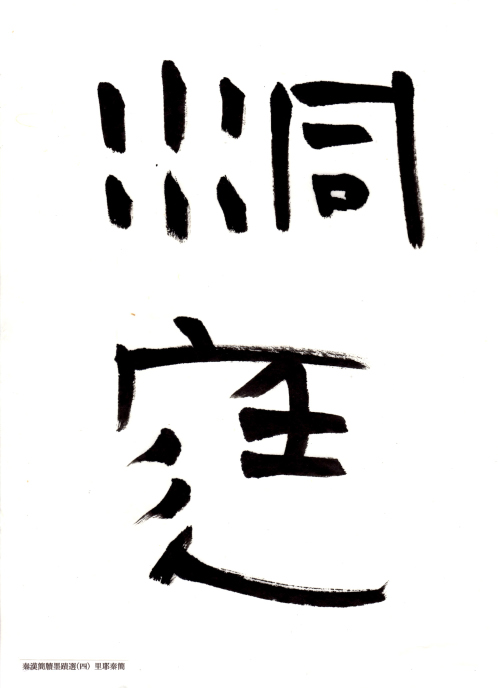 洞
庭
秦漢簡牘墨蹟選(四) 里耶秦簡